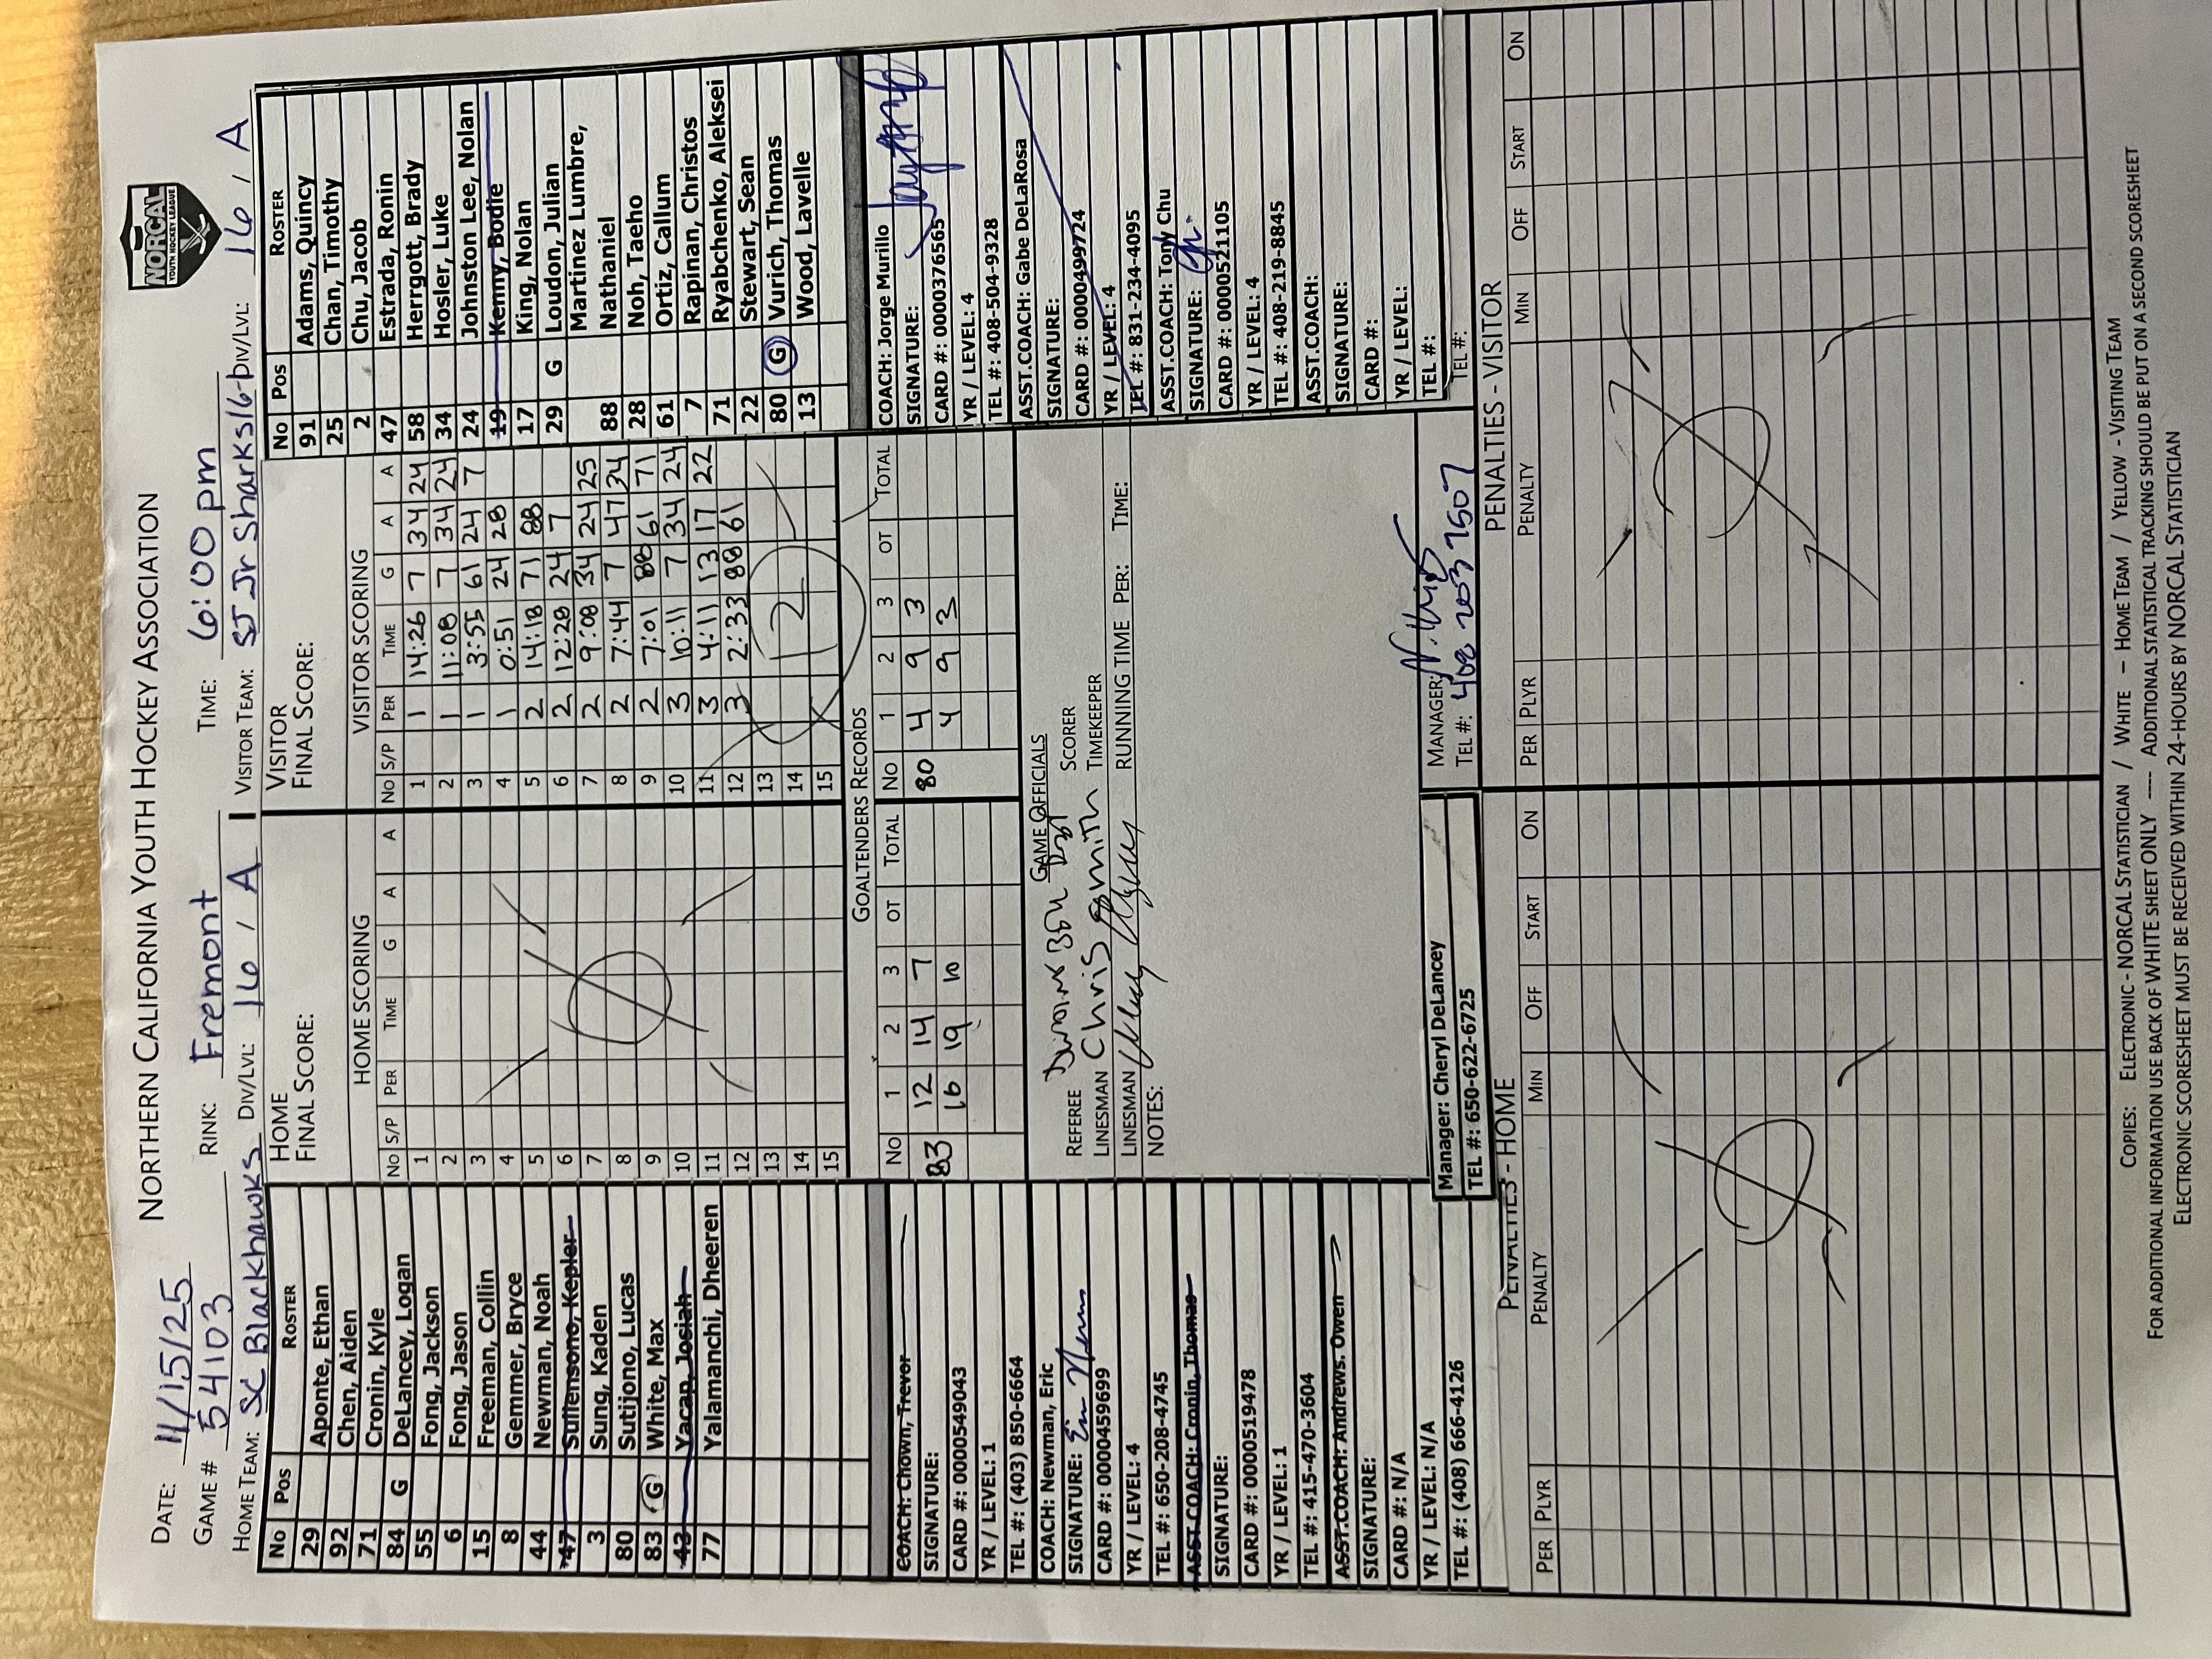 NORTHERN CALIFORNIA YOUTH HOCKEY ASSOCIATION
NORCAL
YOUTH HOCKEY LEAGUE
DATE: 11/15/25
GAME # 54103 RINK: Fremont TIME: 6:00pm
HOME TEAM: SC Blackhawks DIV/LVL: 16 / A VISITOR TEAM: SJ Jr Sharks16- DIV/LVL: 16 / A
No Pos ROSTER
29 Aponte, Ethan
92 Chen, Aiden
71 Cronin, Kyle
84 G DeLancey, Logan
55 Fong, Jackson
6 Fong, Jason
15 Freeman, Collin
8 Gemmer, Bryce
44 Newman, Noah
47 Sullensono, Kepler
3 Sung, Kaden
80 Sutijono, Lucas
83 G White, Max
43 Yacap, Josiah
77 Yalamanchi, Dheeren
COACH: Chown, Trevor
SIGNATURE:
CARD #: 0000549043
YR / LEVEL: 1
TEL #: (403) 850-6664
COACH: Newman, Eric
SIGNATURE:
CARD #: 0000459699
YR / LEVEL: 4
TEL #: 650-208-4745
ASST.COACH: Cronin, Thomas
SIGNATURE:
CARD #: 0000519478
YR / LEVEL: 1
TEL #: 415-470-3604
ASST.COACH: Andrews, Owen
SIGNATURE:
CARD #: N/A
YR / LEVEL: N/A
TEL #: (408) 666-4126
HOME
FINAL SCORE:
HOME SCORING
No S/P PER TIME G A A
1
2
3
4
5
6
7
8
9
10
11
12
13
14
15
VISITOR
FINAL SCORE:
VISITOR SCORING
No S/P PER TIME G A A
1 1 14:26 7 34 24
2 1 11:08 7 34 24
3 1 3:55 61 24 7
4 1 0:51 24 28
5 2 14:18 71 88
6 2 12:28 24 7
7 2 9:08 34 24 25
8 2 7:44 7 47 34
9 2 7:01 88 61 71
10 3 10:11 7 34 24
11 3 4:11 13 17 22
12 3 2:33 88 61
13
14
15
12
GOALTENDERS RECORDS
No 1 2 3 OT TOTAL No 1 2 3 OT TOTAL
83 12 14 7 80 4 9 3
16 19 10 4 9 3
GAME OFFICIALS
REFEREE SCORER
LINESMAN Chris Smith TIMEKEEPER
LINESMAN RUNNING TIME PER: TIME:
NOTES:
Manager: Cheryl DeLancey
TEL #: 650-622-6725
MANAGER:
TEL #: 408 203 7507
No Pos ROSTER
91 Adams, Quincy
25 Chan, Timothy
2 Chu, Jacob
47 Estrada, Ronin
58 Herrgott, Brady
34 Hosler, Luke
24 Johnston Lee, Nolan
19 Kenny, Bodie
17 King, Nolan
29 G Loudon, Julian
Martinez Lumbre,
88 Nathaniel
28 Noh, Taeho
61 Ortiz, Callum
7 Rapinan, Christos
71 Ryabchenko, Aleksei
22 Stewart, Sean
80 G Vurich, Thomas
13 Wood, Lavelle
COACH: Jorge Murillo
SIGNATURE:
CARD #: 0000376565
YR / LEVEL: 4
TEL #: 408-504-9328
ASST.COACH: Gabe DeLaRosa
SIGNATURE:
CARD #: 0000499724
YR / LEVEL: 4
TEL #: 831-234-4095
ASST.COACH: Tony Chu
SIGNATURE:
CARD #: 0000521105
YR / LEVEL: 4
TEL #: 408-219-8845
ASST.COACH:
SIGNATURE:
CARD #:
YR / LEVEL:
TEL #:
TEL #:
PENALTIES - HOME
PER PLYR PENALTY MIN OFF START ON
PENALTIES - VISITOR
PER PLYR PENALTY MIN OFF START ON
COPIES: ELECTRONIC - NORCAL STATISTICIAN / WHITE - HOME TEAM / YELLOW - VISITING TEAM
FOR ADDITIONAL INFORMATION USE BACK OF WHITE SHEET ONLY ---- ADDITIONAL STATISTICAL TRACKING SHOULD BE PUT ON A SECOND SCORESHEET
ELECTRONIC SCORESHEET MUST BE RECEIVED WITHIN 24-HOURS BY NORCAL STATISTICIAN